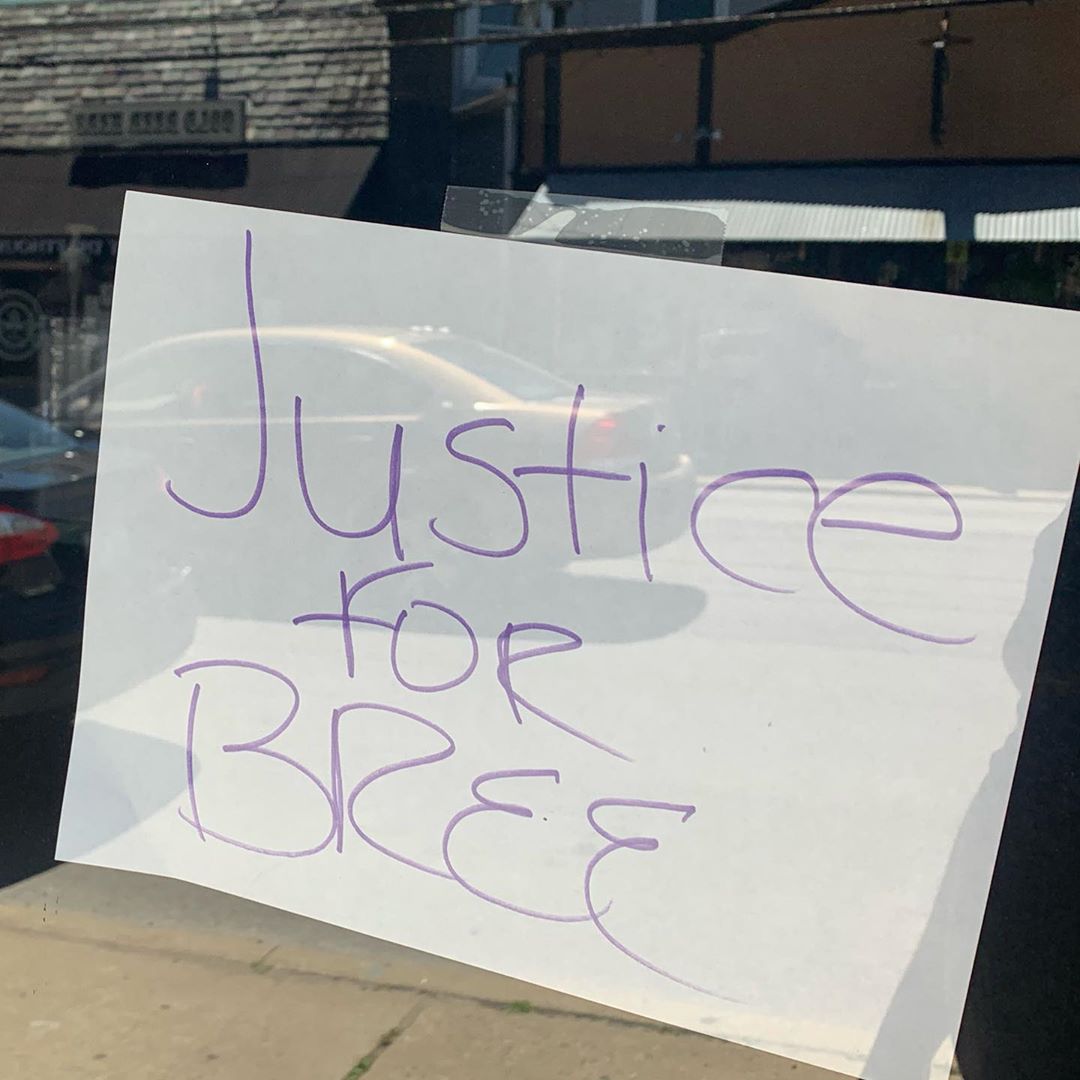 Justice
FOR
BREE